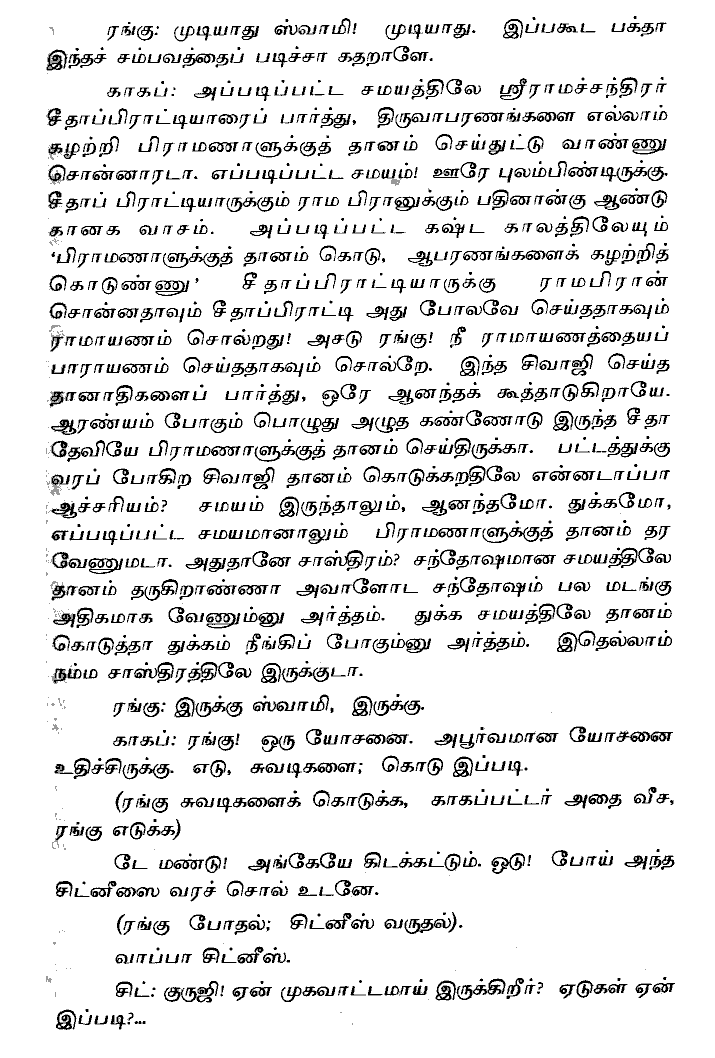 ரங்கு: முடியாது ஸ்வாமி! முடியாது. இப்பகூட பக்தா
இந்தச் சம்பவத்தைப் படிச்சா கதறாளே.
காகப்: அப்படிப்பட்ட சமயத்திலே ஸ்ரீராமச்சந்திரர்
சீதாப்பிராட்டியாரைப் பார்த்து, திருவாபரணங்களை எல்லாம்
கழற்றி பிராமணாளுக்குத் தானம் செய்துட்டு வாண்ணு
சொன்னாரடா. எப்படிப்பட்ட சமயம்! ஊரே புலம்பிண்டிருக்கு.
சீதாப் பிராட்டியாருக்கும் ராம பிரானுக்கும் பதினான்கு ஆண்டு
கானக வாசம். அப்படிப்பட்ட கஷ்ட காலத்திலேயும்
‘பிராமணாளுக்குத் தானம் கொடு, ஆபரணங்களைக் கழற்றித்
கொடுண்ணு’ சீதாப்பிராட்டியாருக்கு ராமபிரான்
சொன்னதாவும் சீதாப்பிராட்டி அது போலவே செய்ததாகவும்
ராமாயணம் சொல்றது! அசடு ரங்கு! நீ ராமாயணத்தையப்
பாராயணம் செய்ததாகவும் சொல்றே. இந்த சிவாஜி செய்த
தானாதிகளைப் பார்த்து, ஒரே ஆனந்தக் கூத்தாடுகிறாயே.
ஆரண்யம் போகும் பொழுது அழுத கண்ணோடு இருந்த சீதா
தேவியே பிராமணாளுக்குத் தானம் செய்திருக்கா. பட்டத்துக்கு
வரப் போகிற சிவாஜி தானம் கொடுக்கறதிலே என்னடாப்பா
ஆச்சரியம்? சமயம் இருந்தாலும், ஆனந்தமோ. துக்கமோ,
எப்படிப்பட்ட சமயமானாலும் பிராமணாளுக்குத் தானம் தர
வேணுமடா. அதுதானே சாஸ்திரம்? சந்தோஷமான சமயத்திலே
தானம் தருகிறாண்ணா அவாளோட சந்தோஷம் பல மடங்கு
அதிகமாக வேணும்னு அர்த்தம். துக்க சமயத்திலே தானம்
கொடுத்தா துக்கம் நீங்கிப் போகும்னு அர்த்தம். இதெல்லாம்
நம்ம சாஸ்திரத்திலே இருக்குடா.
ரங்கு: இருக்கு ஸ்வாமி, இருக்கு.
காகப்: ரங்கு! ஒரு யோசனை. அபூர்வமான யோசனை
உதிச்சிருக்கு. எடு, சுவடிகளை; கொடு இப்படி.
(ரங்கு சுவடிகளைக் கொடுக்க, காகப்பட்டர் அதை வீச,
ரங்கு எடுக்க)
டே மண்டு! அங்கேயே கிடக்கட்டும். ஒடு! போய் அந்த
சிட்னீஸை வரச் சொல் உடனே.
(ரங்கு போதல்; சிட்னீஸ் வருதல்).
வாப்பா சிட்னீஸ்.
சிட்: குருஜி! ஏன் முகவாட்டமாய் இருக்கிறீர்? ஏடுகள் ஏன்
இப்படி?...